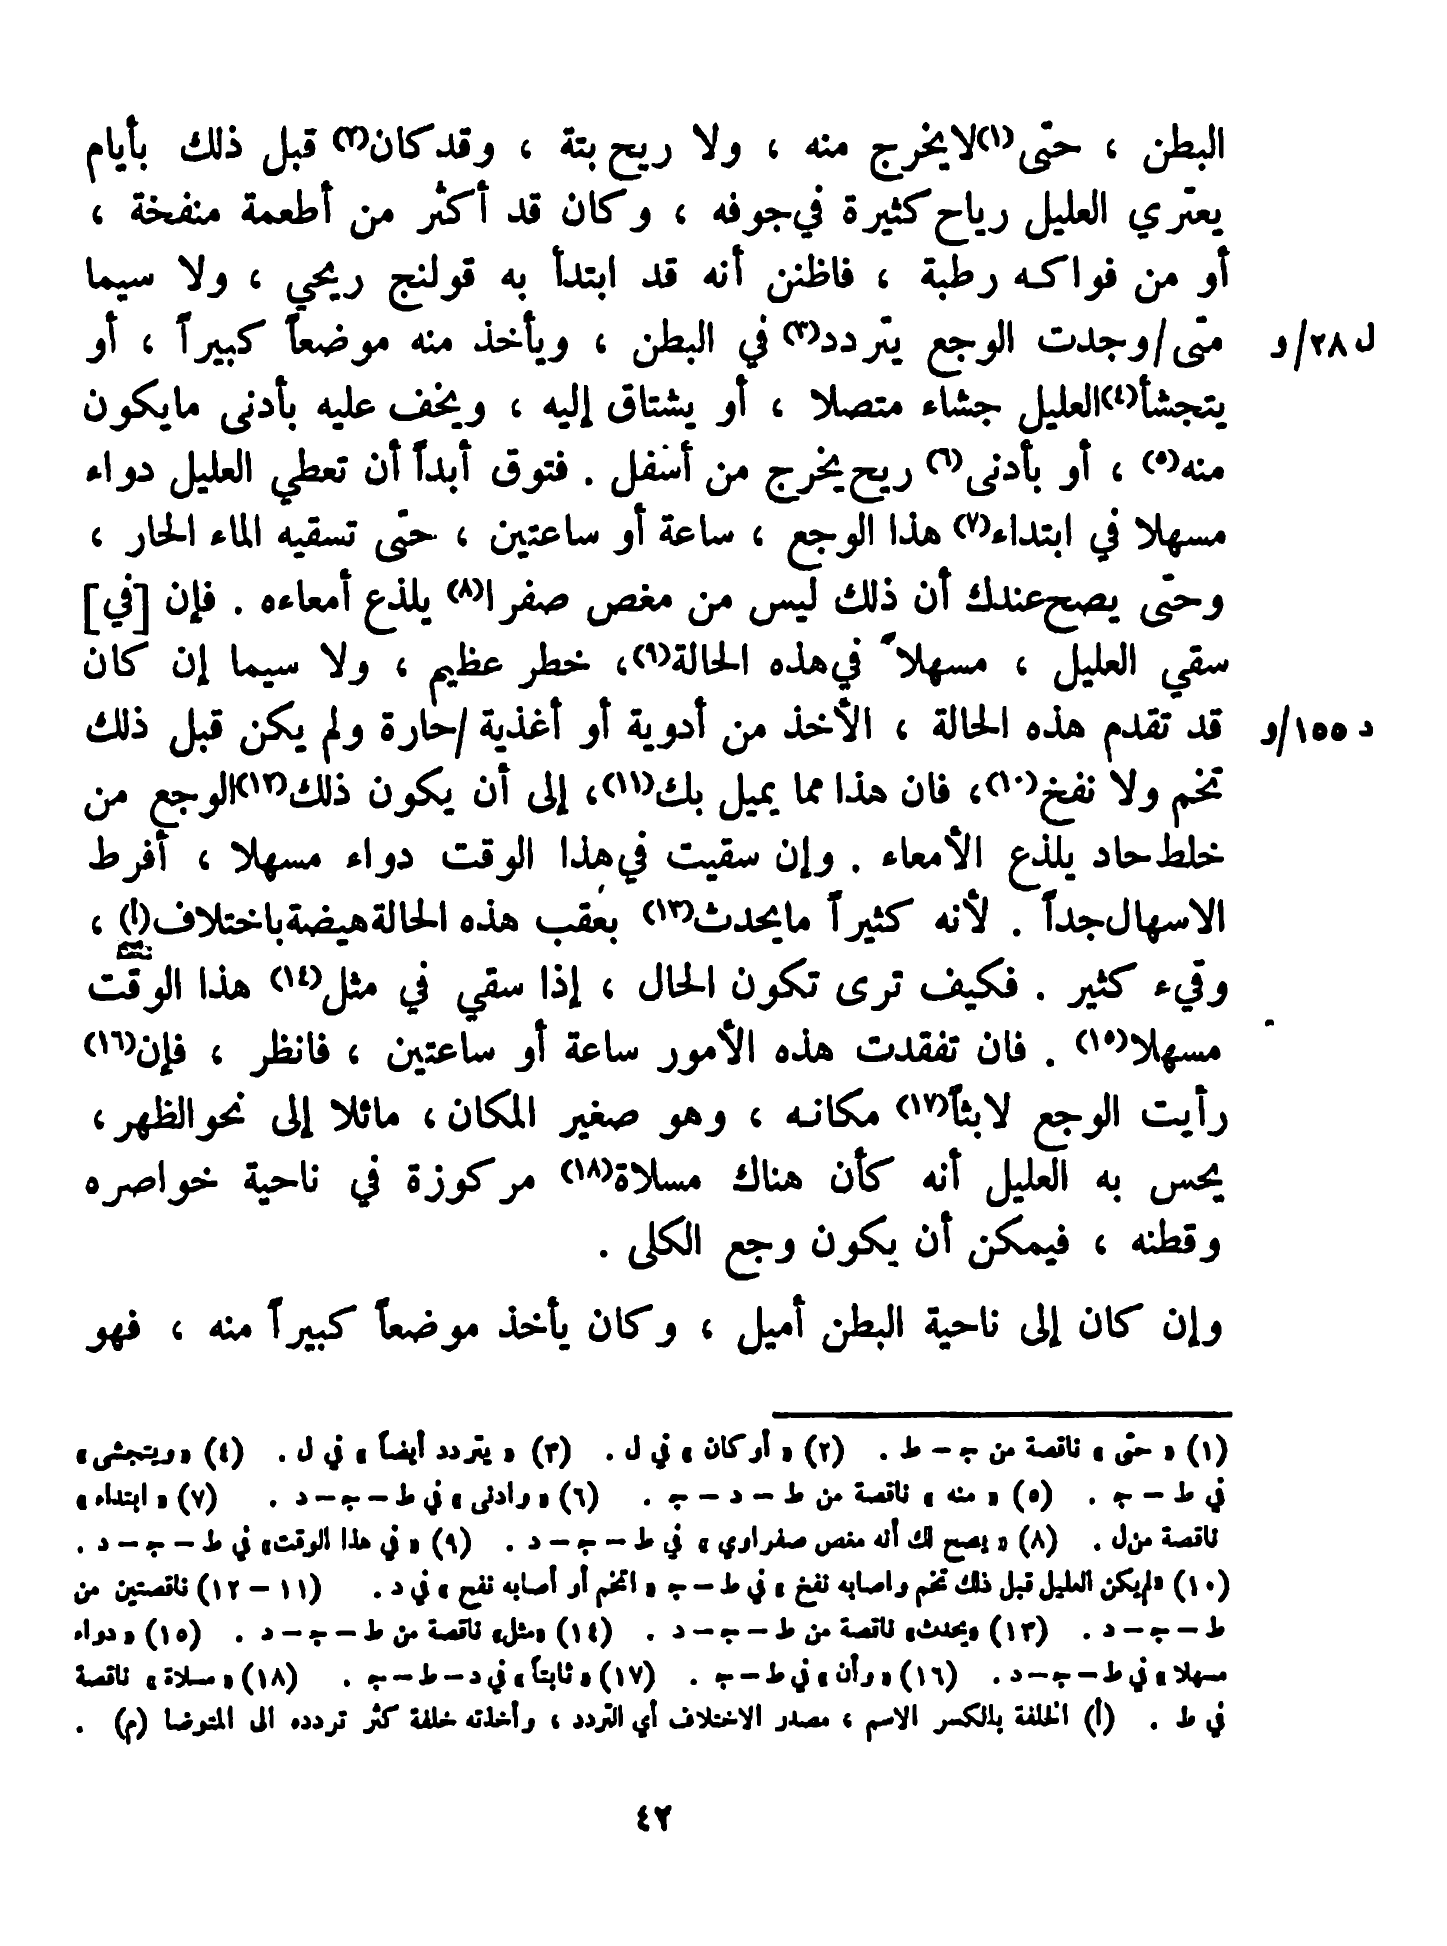 البطن ، حتّى(١)لايخرج منه ، ولا ريح بتة ، وقد كان(٢) قبل ذلك بأيام
يعتري العليل رياح كثيرة في جوفه ، وكان قد أكثر من أطعمة منفخة ،
أو من فواكه رطبة ، فاظنن أنه قد ابتدأ به قولنج ريحي ، ولا سيما
ل ٢٨/و متى/وجدت الوجع يتردد(٣) في البطن ، ويأخذ منه موضعاً كبيراً ، أو
يتجشأ(٤)العليل جشاء متصلا ، أو يشتاق إليه ، ويخف عليه بأدنى مايكون
منه(٥) ، أو بأدنى(٦) ريح يخرج من أسفل . فتوق أبداً أن تعطي العليل دواء
مسهلا في ابتداء(٧) هذا الوجع ، ساعة أو ساعتين ، حتّى تسقيه الماء الحار ،
وحتّى يصح عندك أن ذلك ليس من مغص صفرا(٨) يلذع أمعاءه . فإن [في]
سقي العليل ، مسهلاً في هذه الحالة(٩)، خطر عظيم ، ولا سيما إن كان
د ١٥٥/و قد تقدم هذه الحالة ، الأخذ من أدوية أو أغذية /حارة ولم يكن قبل ذلك
تخم ولا نفخ(١٠)، فان هذا مما يميل بك(١١)، إلى أن يكون ذلك(١٢)الوجع من
خلط حاد يلذع الأمعاء . وإن سقيت في هذا الوقت دواء مسهلا ، أفرط
الاسهال جداً . لأنه كثيراً مايحدث(١٣) بعقب هذه الحالة هيضة باختلاف(أ) ،
وقيء كثير . فكيف ترى تكون الحال ، إذا سقي في مثل(١٤) هذا الوقت
مسهلا(١٥) . فان تفقدت هذه الأمور ساعة أو ساعتين ، فانظر ، فإن(١٦)
رأيت الوجع لابثاً(١٧) مكانه ، وهو صغير المكان ، مائلا إلى نحو الظهر ،
يحس به العليل أنه كأن هناك مسلاة(١٨) مركوزة في ناحية خواصره
وقطنه ، فيمكن أن يكون وجع الكلى .
وإن كان إلى ناحية البطن أميل ، وكان يأخذ موضعاً كبيراً منه ، فهو
(١) « حتّى » ناقصة من ج – ط . (٢) « أو كان » في ل . (٣) « يتردد أيضاً » في ل . (٤) «ويتجشى»
في ط – ج . (٥) « منه » ناقصة من ط – د – ج . (٦) «وادنى» في ط – ج – د . (٧) « ابتداء »
ناقصة من ل . (٨) « يصح لك أنه مغص صفراوي » في ط – ج – د . (٩) « في هذا الوقت» في ط – ج – د .
(١٠) «لم يكن العليل قبل ذلك تخم واصابه نفخ » في ط – ج « اتخم أو أصابه نفح » في د . (١١ – ١٢) ناقصتين من
ط – ج – د . (١٣) «يحدث» ناقصة من ط – ج – د . (١٤) «مثل» ناقصة من ط – ج – د . (١٥) « دواء
مسهلا » في ط – ج – د . (١٦) « وأن » في ط – ج . (١٧) « ثابتاً » في د – ط – ج . (١٨) « مسلاة » ناقصة
في ط . (أ) الخلفة بالكسر الاسم ، مصدر الاختلاف أي التردد ، وأخذته خلفة كثر تردده الى المتوضا (م) .
٤٢